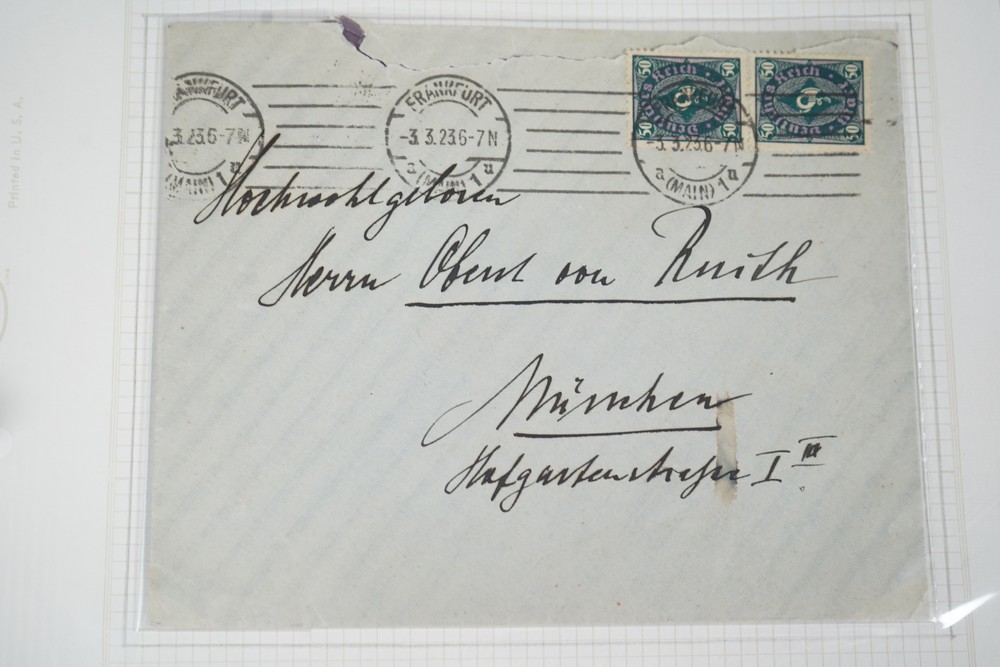 Printed in U. S. A.
FRANKFURT
3.3.23.6-7N
(MAIN) 1u
FRANKFURT
-3.3.23.6-7N
a (MAIN) 1u
-3.3.23.6-7N
a (MAIN) 1u
50 50
Deutsches Reich
50 50
50 50
Deutsches Reich
50 50
Hochwohlgeboren
Herrn Oberst von
München
Hofgartenstraße I III